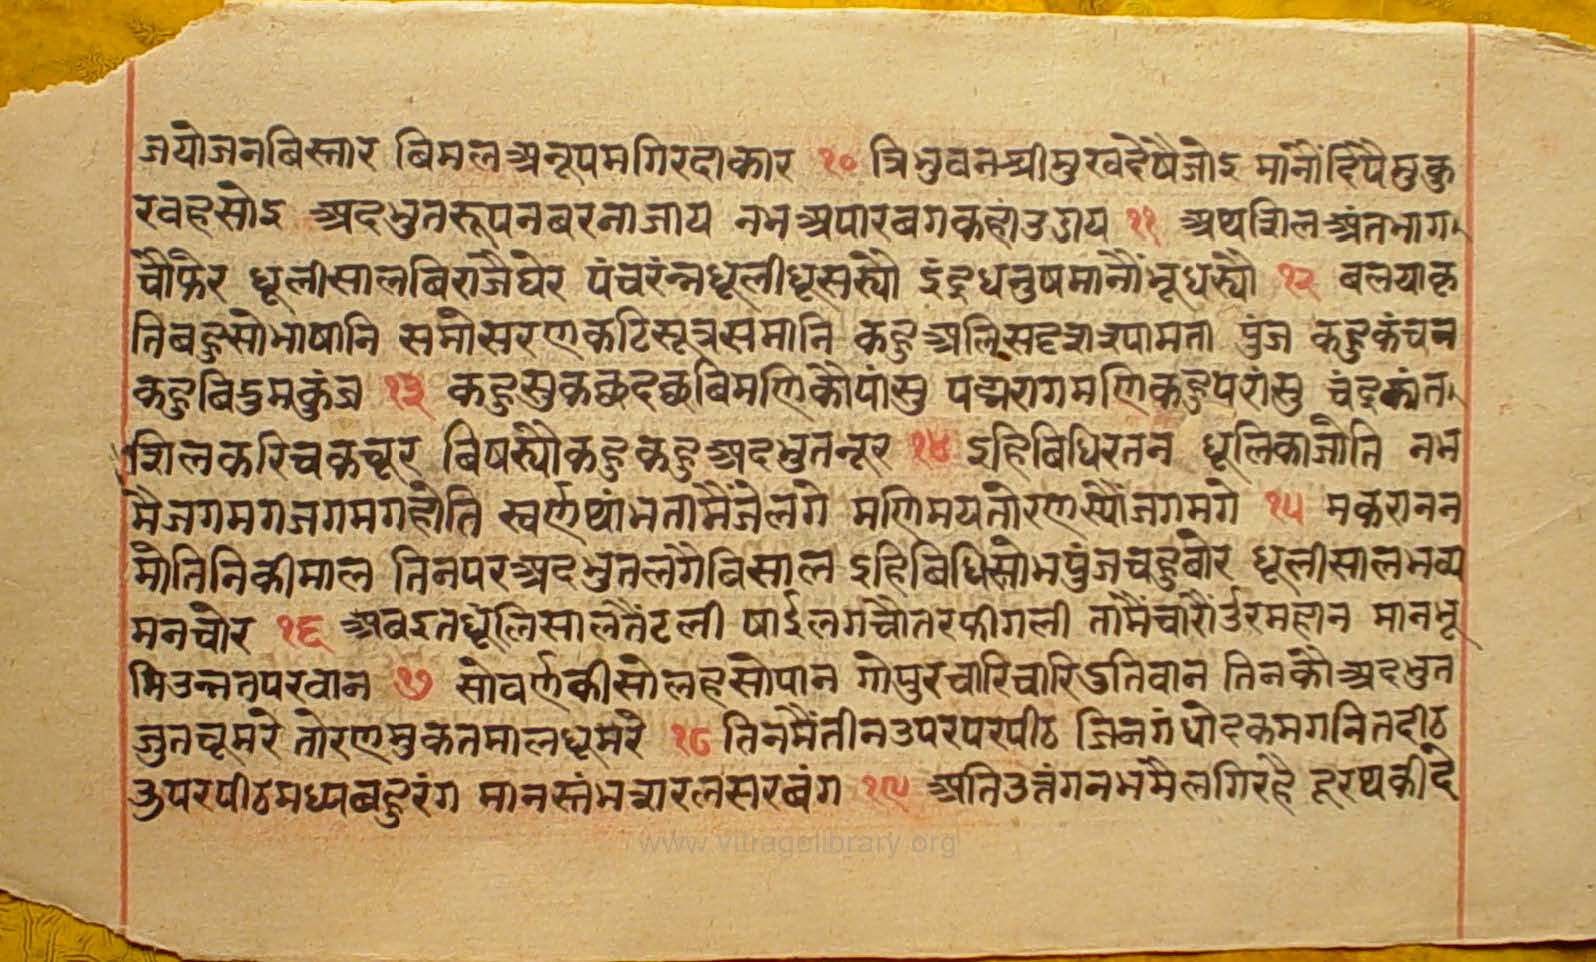 जयोजनबिस्तार बिमलअनूपमगिरदाकार १० त्रिभुवनश्रीमुखदेषैजोइ मानौंदिपैमुकु
रवहसोइ अदभुतरूपनबरनाजाय नभअपारबगकहांउडाय ११ अथशिलअंतभाग
चौफेर धूलीसालबिराजैघेर पंचरंन्नधूलीधूसर्यौ इंद्रधनुषमानौंभूधर्यौ १२ बलयाकृ
तिबहुसोभाषानि समोसरणकटिसूत्रसमानि कहुअलिसदृशश्यामता पुंज कहुकंचन
कहुबिद्रुमकुंज १३ कहुसुकछदछबिमणिकौपांसु पद्मरागमणिकहुपरांसु चंद्रकांत
शिलकरिचकचूर बिषर्यौकहुकहुअदभुतनूर १४ इहिबिधिरतन धूलिकाजोति नभ
मैजगमगजगमगहोति स्वर्णथांभतामैंजेलगे मणिमयतोरणस्यौंजगमगे १५ मकरानन
मोतिनिकीमाल तिनपरअदभुतलगैबिसाल इहिबिधिसोभपुंजचहुवोर धूलीसालभव्य
मनचोर १६ अबइतधूलिसालतैंटली षाईलगचौतरफीगली तामैंचारौंउरमहान मानभू
मिउन्नतपरवान १७ सोवर्णकीसोलहसोपान गोपुरचारिचारिदुतिवान तिनकौअदभुत
जुतचूमरे तोरणमुकतमालधूमरे १८ तिनमैंतीनउपरपरपीठ जिनगंधोदकमगनितदीठ
उपरपीठमध्यबहुरंग मानस्तंभच्यारलसरबंग १९ अतिउतंगनभमैलगिरहै दूरथकीदे
www.vitragelibrary.org